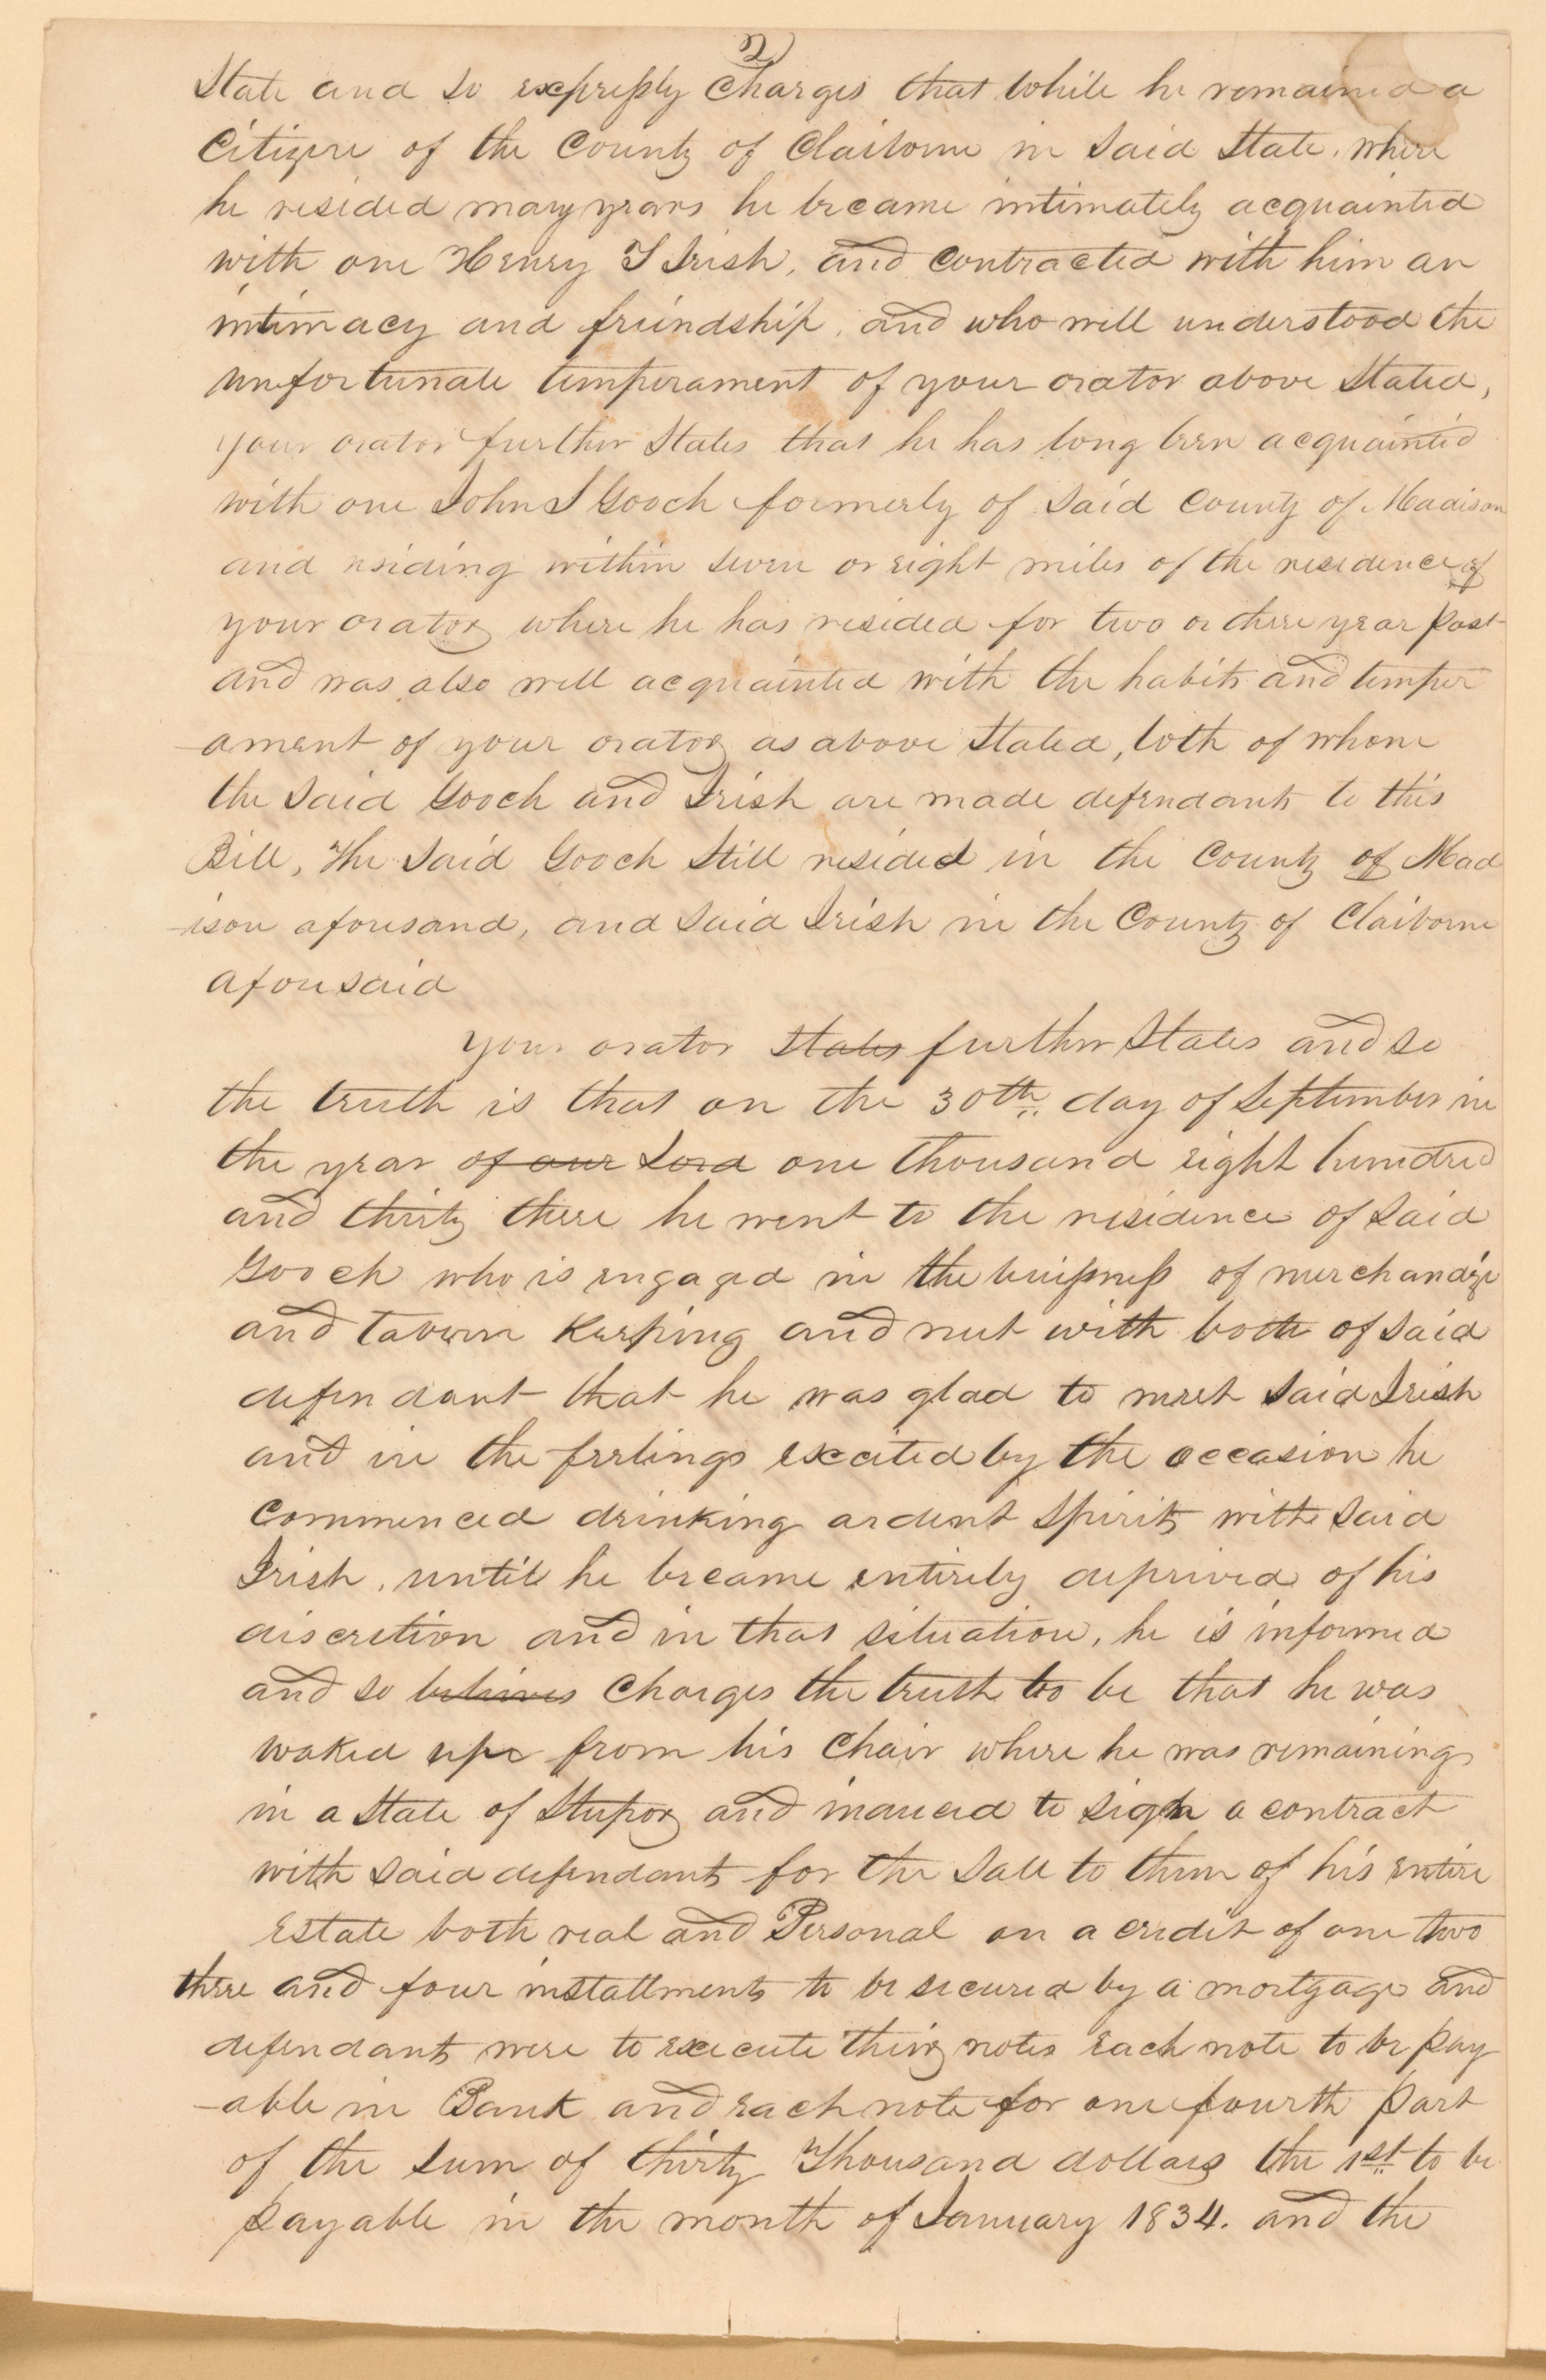 2)
State and so expressly Charges that while he remained a
Citizen of the County of Claiborne in said State, where
he resided many years he became intimately acquainted
with one Henry I Irish, and contracted with him an
intimacy and friendship, and who well understood the
unfortunate temperament of your orator above Stated,
your orator further States that he has long been acquainted
with one John S Gooch formerly of said County of Madison
and residing within seven or eight miles of the residence of
your orator where he has resided for two or three year past
and was also well acquainted with the habits and temper
-ament of your orator as above Stated, both of whom
the said Gooch and Irish are made defendants to this
Bill, The said Gooch Still resided in the County of Mad
-ison aforesand, and said Irish in the County of Claiborne
aforesaid
your orator states further States and so
the truth is that on the 30th day of September in
the year of our Lord one thousand eight hundred
and thirty three he went to the residence of said
Gooch who is engaged in the buisness of merchandize
and tavern Keeping and met with both of said
defendant that he was glad to meet said Irish
and in the feelings excited by the occasion he
commenced drinking ardent spirits with said
Irish, until he became entirely deprived of his
discretion and in that situation, he is informed
and so believes Charges the truth to be that he was
waked up from his Chair where he was remaining
in a State of Stupor and induced to sign a contract
with said defendants for the sale to them of his entire
Estate both real and Personal on a credit of one two
three and four installments to be secured by a mortgage and
defendants were to execute their notes each note to be pay
-able in Bank and each note for one fourth part
of the sum of thirty Thousand dollars the 1st to be
payable in the month of January 1834. and the